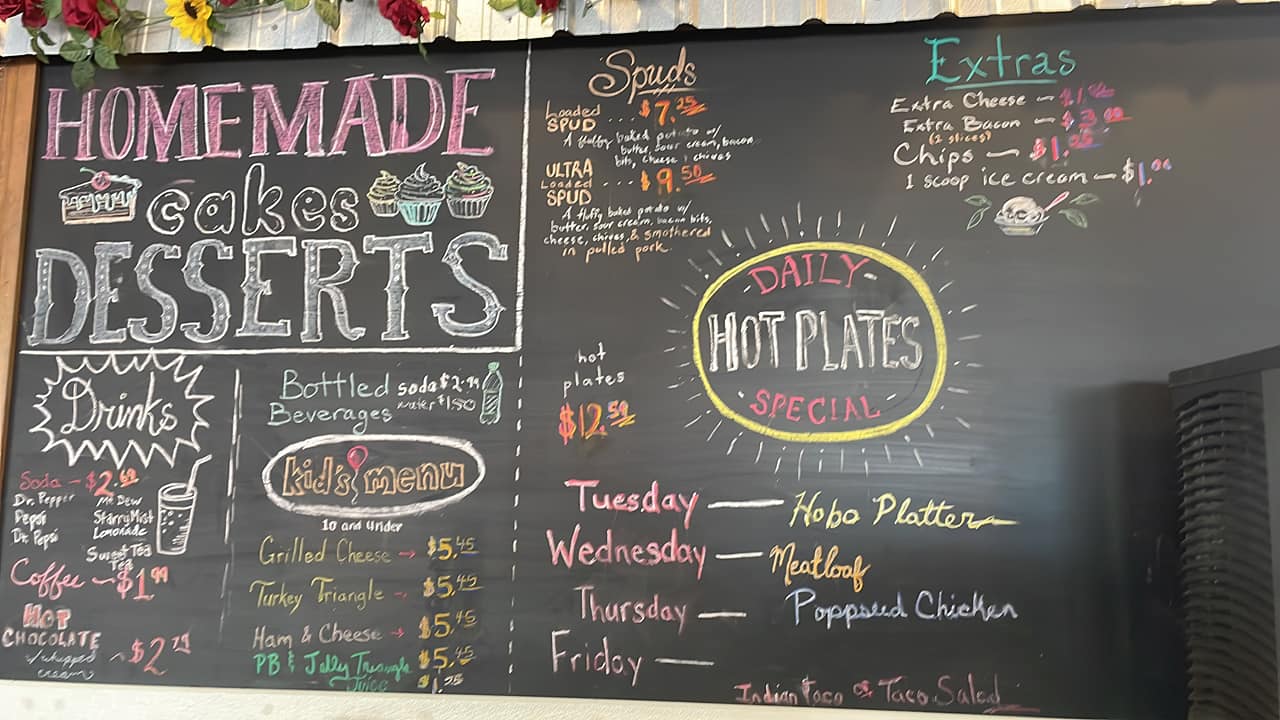 HOMEMADE
cakes
DESSERTS
Drinks
Soda - $2.
Dr. Pepper
Pepsi
Dt. Pepsi
Mt Dew
Starry Mist
Lemonade
Sweet Tea
Tea
Coffee - $1.99
HOT
CHOCOLATE
w/whipped
cream
Bottled
Beverages
soda $2.
water $1.50
kid's menu
10 and under
Grilled Cheese → $5.45
Turkey Triangle → $5.45
Ham & Cheese → $5.45
PB & Jelly Triangle $5.45
Juice $1.
Spuds
Loaded
SPUD ... $7.25
A fluffy baked potato w/
butter, sour cream, bacon
bits, cheese, chives
ULTRA
Loaded ... $9.50
SPUD
A fluffy baked potato w/
butter, sour cream, bacon bits,
cheese, chives, & smothered
in pulled pork.
Extras
Extra Cheese -
Extra Bacon -
(2 slices)
Chips -
1 scoop ice cream -
DAILY
HOT PLATES
SPECIAL
hot
plates
$12.50
Tuesday — Hobo Platter
Wednesday — Meatloaf
Thursday — Poppseed Chicken
Friday —
Indian Taco or Taco Salad